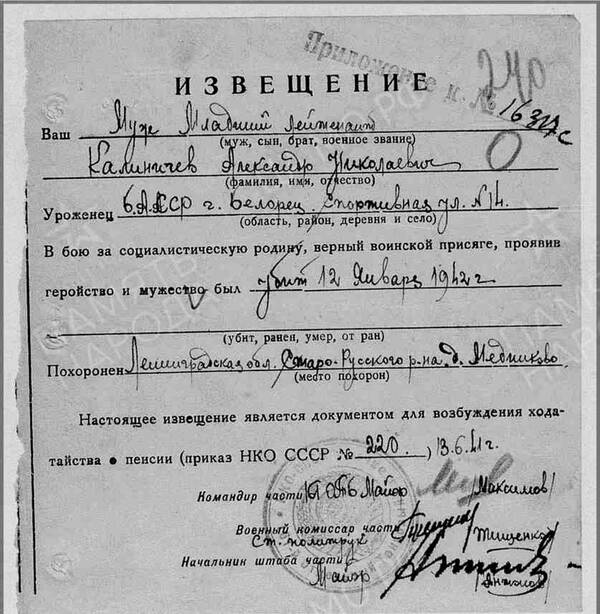 Приложение к №
240
16317с
ИЗВЕЩЕНИЕ
Ваш Муж Младший лейтенант
(муж, сын, брат, военное звание)
Калиничев Александр Николаевич
(фамилия, имя, отчество)
Уроженец Б.А.ССР г. Белорец. Спортивная ул. N 14.
(область, район, деревня и село)
В бою за социалистическую родину, верный воинской присяге, проявив
геройство и мужество был убит 12 Января 1942 г
(убит, ранен, умер, от ран)
Похоронен Ленинградская обл. Старо-Русского р-на д. Медниково
(место похорон)
Настоящее извещение является документом для возбуждения хода-
тайства о пенсии (приказ НКО СССР № 220 ) 13.6.41г.
Командир части Майор Максимов
Военный комиссар части Тищенко
Ст. политрук
Начальник штаба части
Майор Антонов